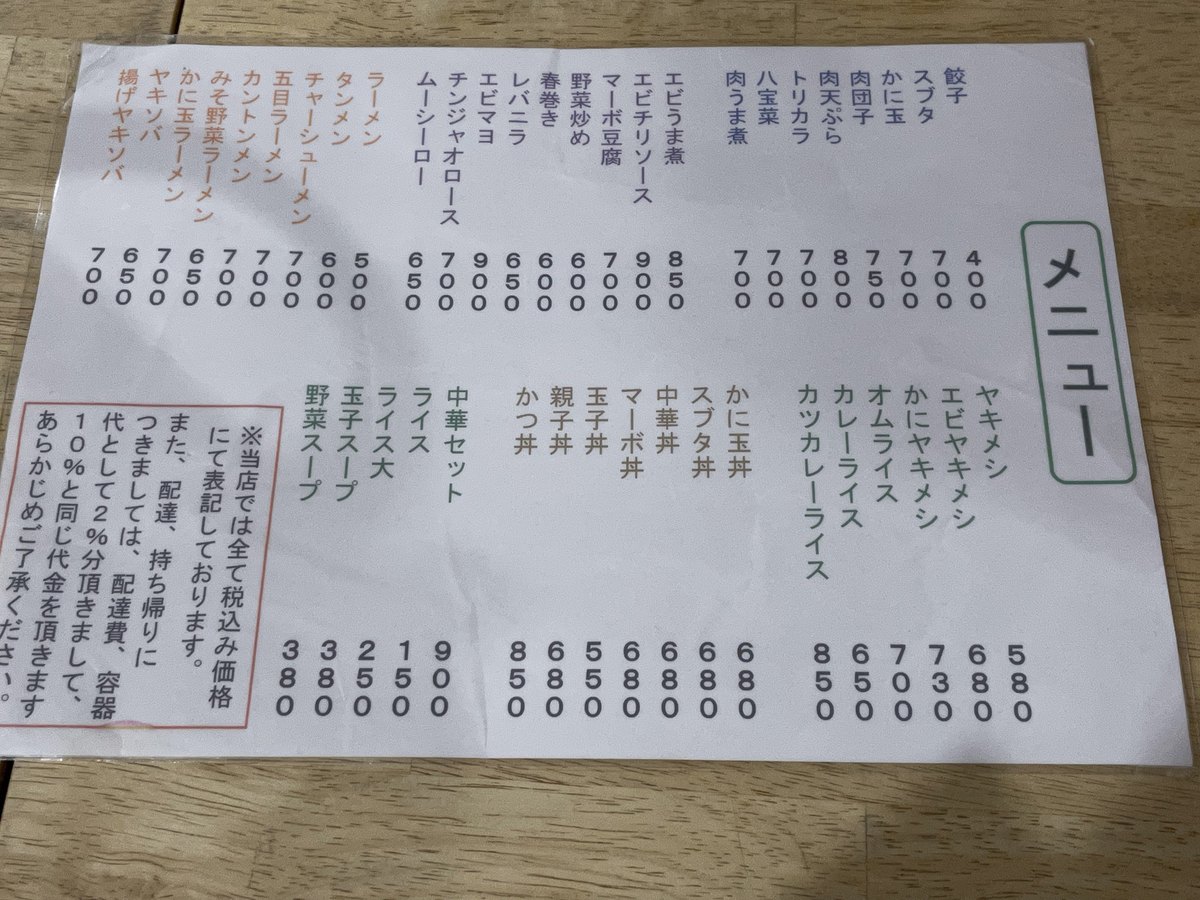 メニュー
餃子 400
スブタ 700
かに玉 700
肉団子 750
肉天ぷら 800
トリカラ 700
八宝菜 700
肉うま煮 700
エビうま煮 850
エビチリソース 900
マーボ豆腐 700
野菜炒め 600
春巻き 600
レバニラ 650
エビマヨ 900
チンジャオロース 700
ムーシーロー 650
ラーメン 500
タンメン 600
チャーシューメン 700
五目ラーメン 700
カントンメン 700
みそ野菜ラーメン 650
かに玉ラーメン 700
ヤキソバ 650
揚げヤキソバ 700
ヤキメシ 580
エビヤキメシ 680
かにヤキメシ 730
オムライス 700
カレーライス 650
カツカレーライス 850
かに玉丼 680
スブタ丼 680
中華丼 680
マーボ丼 680
玉子丼 550
親子丼 680
かつ丼 850
中華セット 900
ライス 150
ライス大 250
玉子スープ 380
野菜スープ 380
※当店では全て税込み価格
にて表記しております。
また、配達、持ち帰りに
つきましては、配達費、容器
代として2%分頂きまして、
10%と同じ代金を頂きます
あらかじめご了承ください。